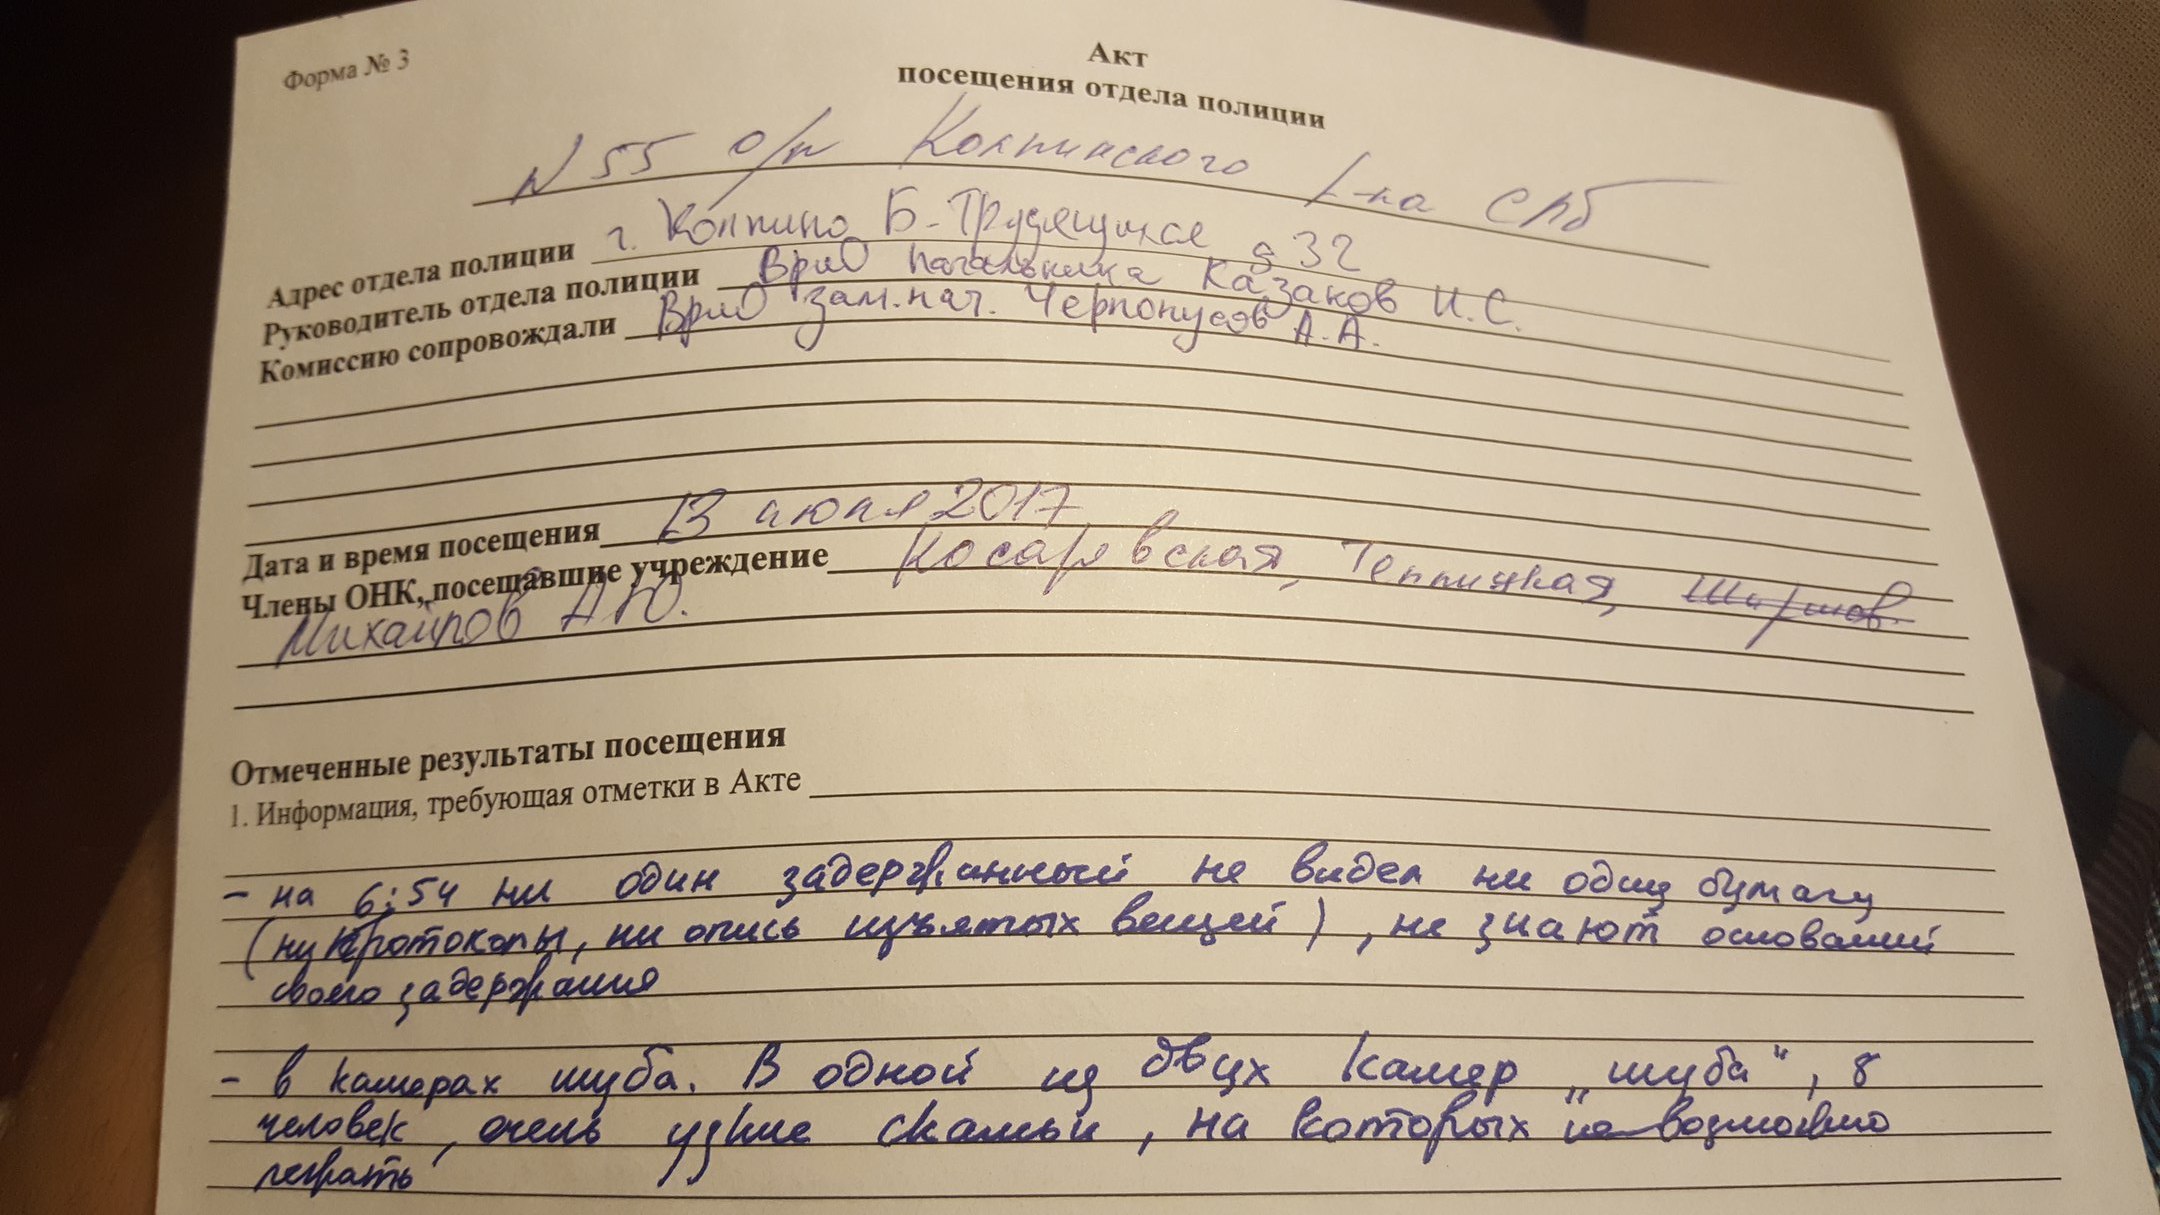 Форма № 3
Акт
посещения отдела полиции
N 55 о/п Колпинского р-на СПб
Адрес отдела полиции г. Колпино Б-Трудящихся д 32
Руководитель отдела полиции Врио начальника Казаков И.С.
Комиссию сопровождали Врио зам.нач. Черпонусов А.А.
Дата и время посещения 13 июня 2017
Члены ОНК, посещавшие учреждение Косаревская, Теплицкая,
А.Ю.
Отмеченные результаты посещения
1. Информация, требующая отметки в Акте
- на 6:54 ни один задержанный не видел ни одну бумагу
(ни протоколы, ни опись изъятых вещей), не знают оснований
своего задержания
- в камерах шуба. В одной из двух камер „шуба", 8
человек, очень узкие скамьи, на которых невозможно
лежать